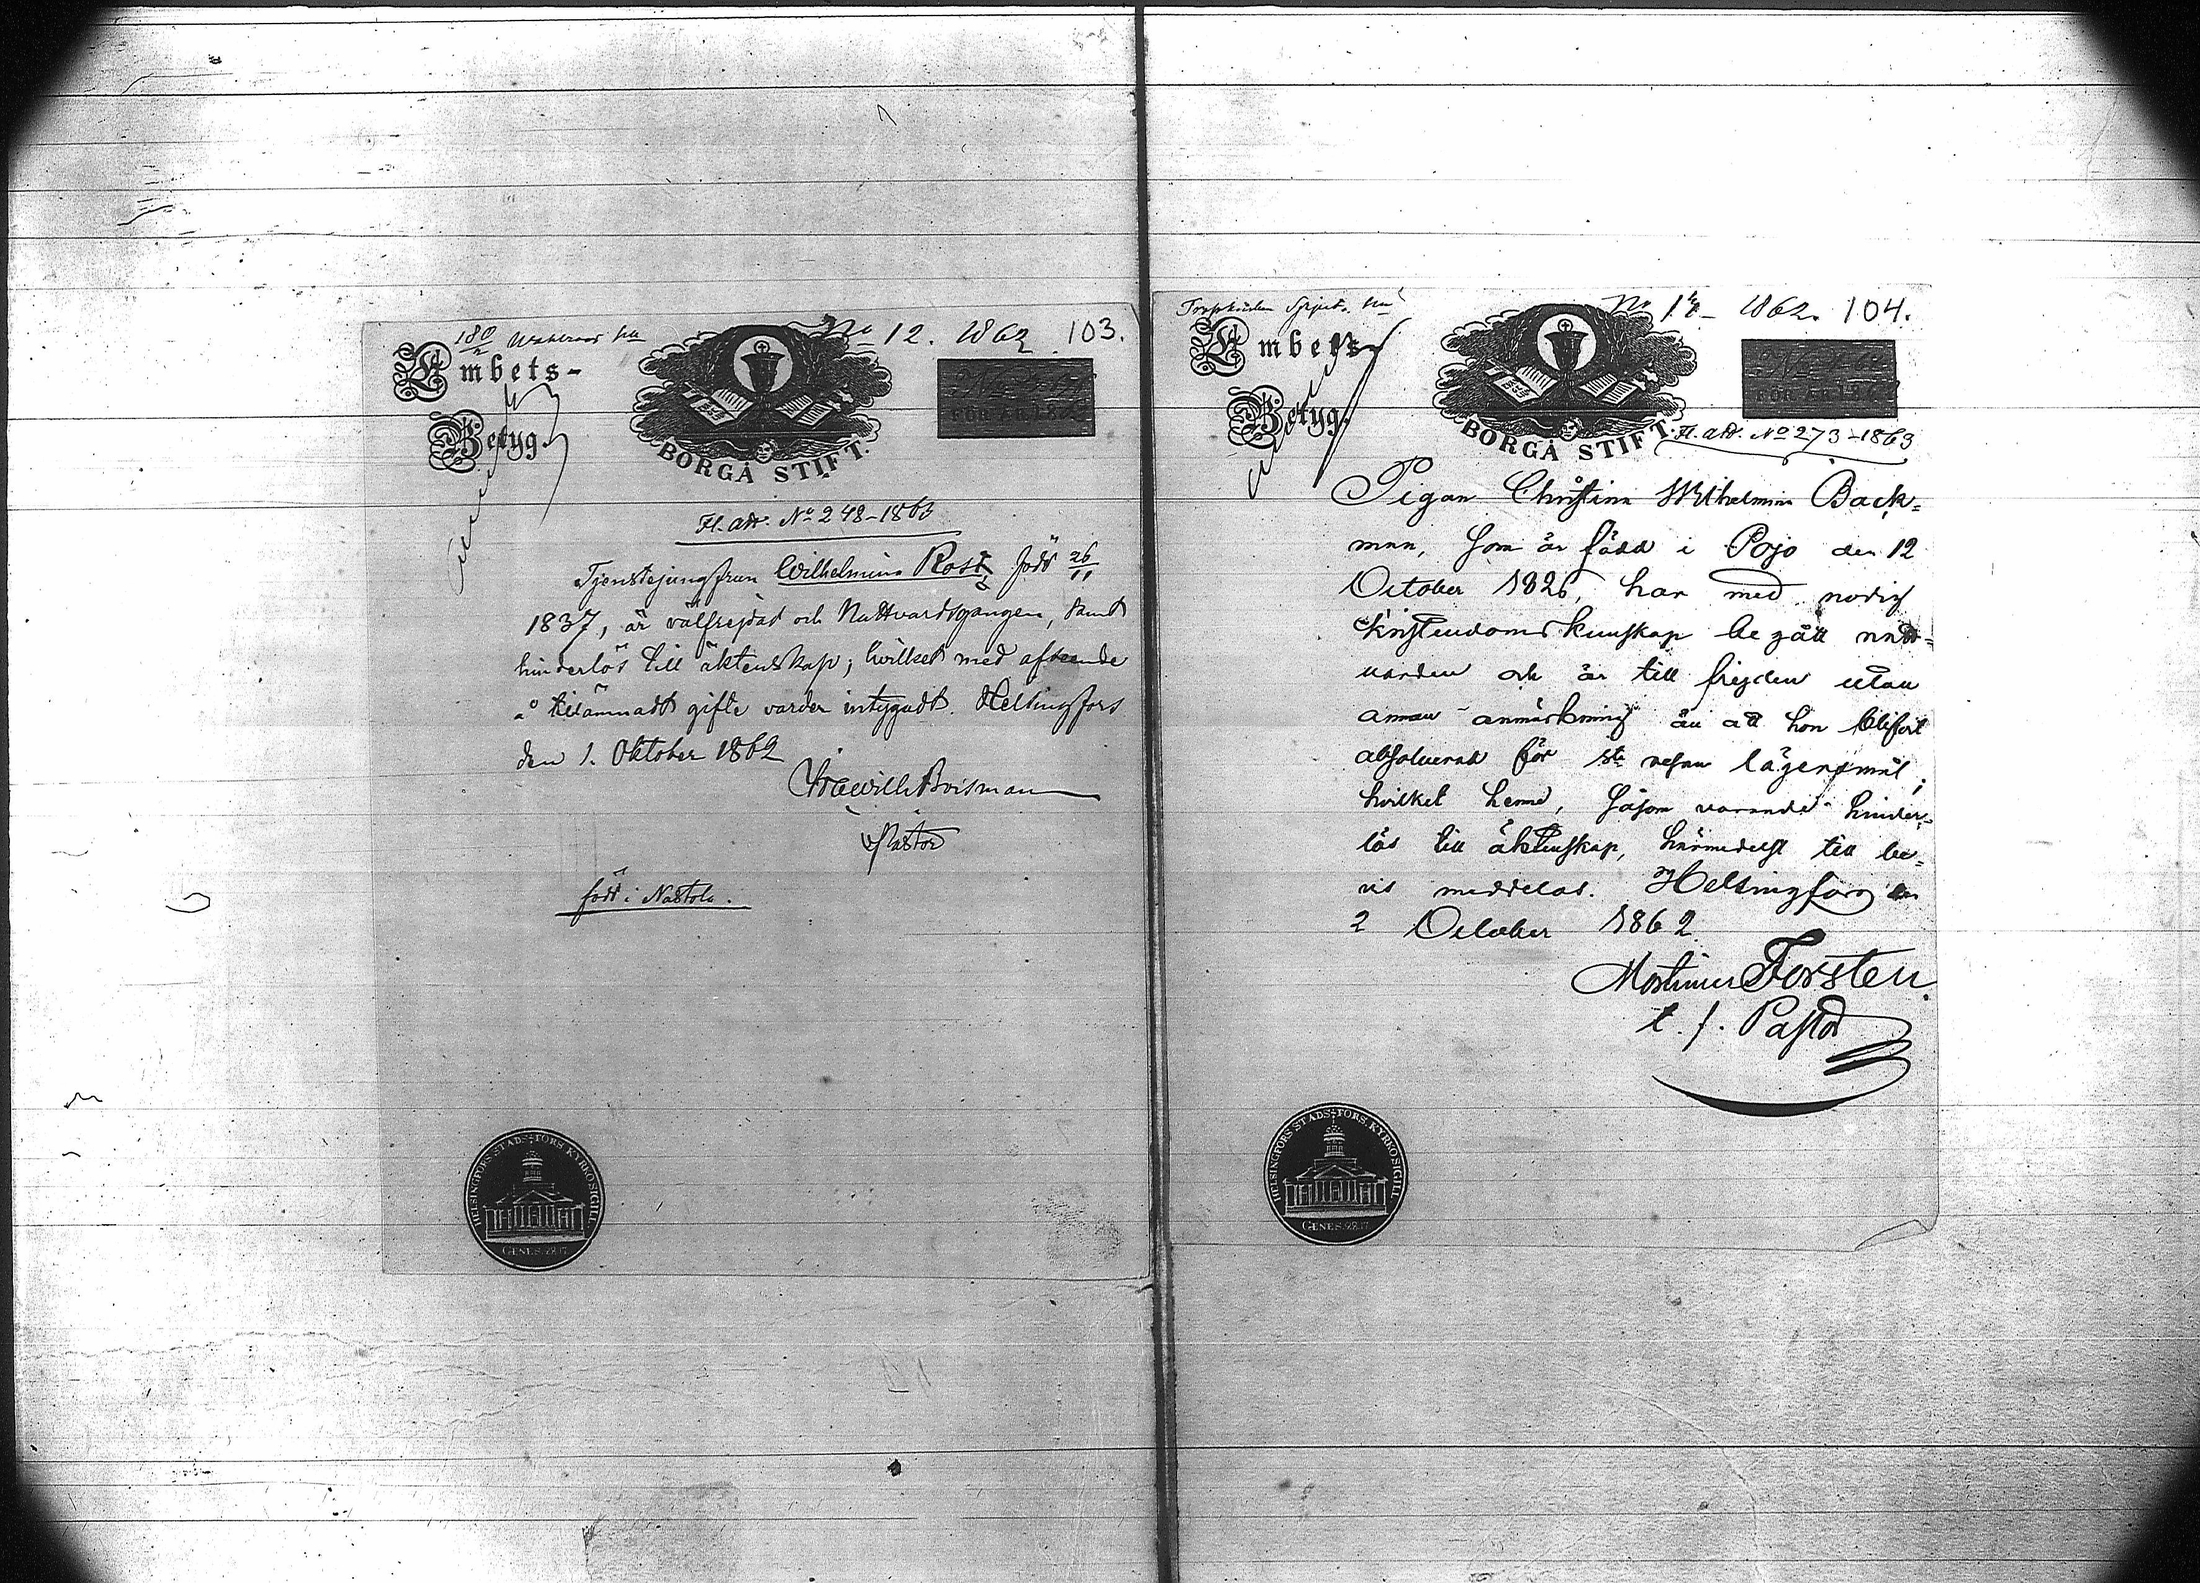 No 12. 1862 103.
Ambets-
Betyg.
BORGÅ STIFT.
FÖR ÅR 18
Fl. att. No 248-1863
Tjenstejungfrun Wilhelmina Rost, född 26/11
1837, är välfrejdad och Nattvardsgången, samt
hinderlös till äktenskap; hvilket med afseende
å tillämnadt gifte varder intygadt. Helsingfors
den 1. Oktober 1862
Boisman
Pastor
född i Nastola.
HELSINGFORS STADS-FÖRS. KYRKOSIGILL.
GENES. 28.17.
No 1862. 104.
Ambets-
Betyg.
BORGÅ STIFT.
FÖR ÅR 186
Fl. att. No 273-1863
Pigan Christina Wilhelmina Back=
man, som är född i Pojo den 12
October 1826, har med nödig
kristendomskunskap begått natt=
varden och är till frejden utan
annan anmärkning än att hon blifvit
absolverad för lägersmål;
hvilket henne, såsom varande hinder=
lös till äktenskap, härmedelst till be=
vis meddelas. Helsingfors den
2 October 1862.
Mortimer Forsten
t. f. Pastor
HELSINGFORS STADS-FÖRS. KYRKOSIGILL.
GENES. 28.17.